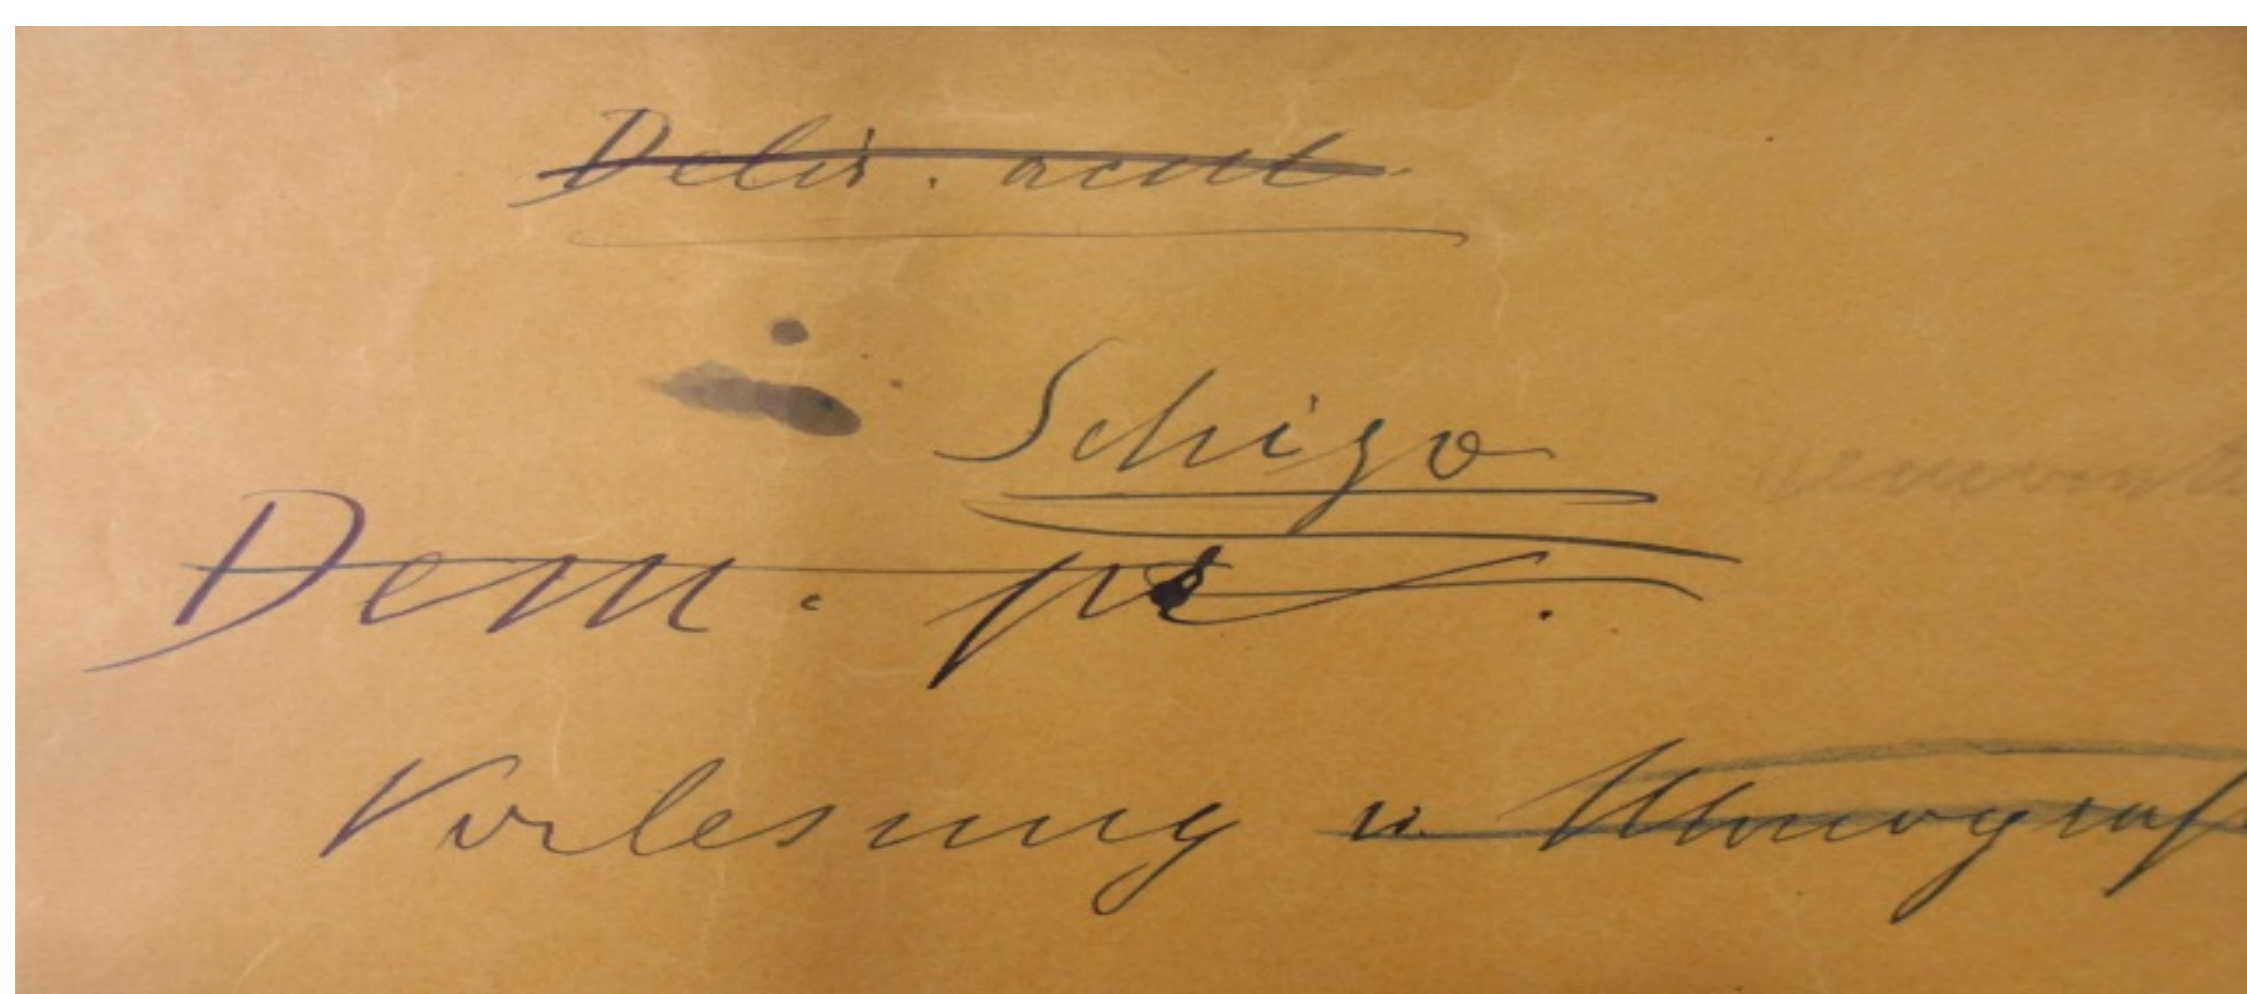 Delir. acut.
Schizo
Dem. pr.
Vorlesung u. Monograf